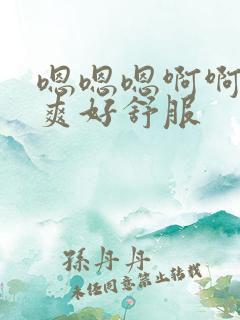 嗯嗯嗯啊啊
爽好舒服
孫丹丹
未经同意禁止转载